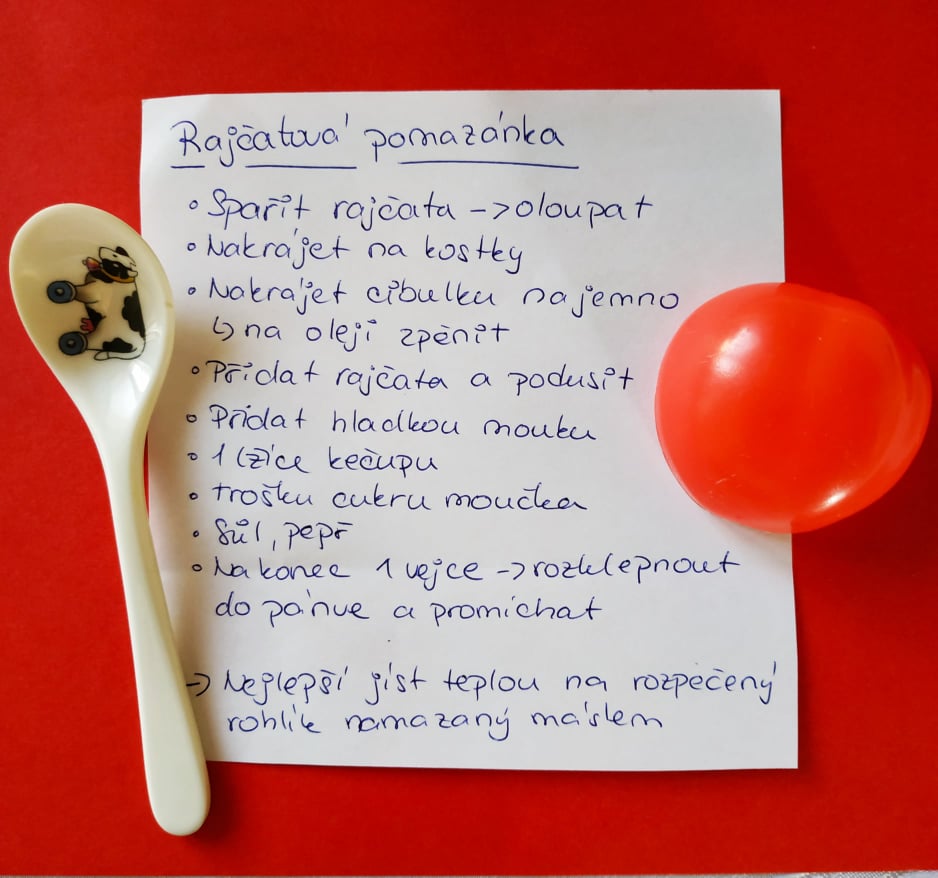 Rajčatová pomazánka
• Spařit rajčata -> oloupat
• Nakrájet na kostky
• Nakrájet cibulku najemno
↳ na oleji zpěnit
• Přidat rajčata a podusit
• Přidat hladkou mouku
• 1 lžíce kečupu
• trošku cukru moučka
• Sůl, pepř
• Nakonec 1 vejce -> rozklepnout
do pánve a promíchat
-> Nejlepší jíst teplou na rozpečený
rohlík namazaný máslem